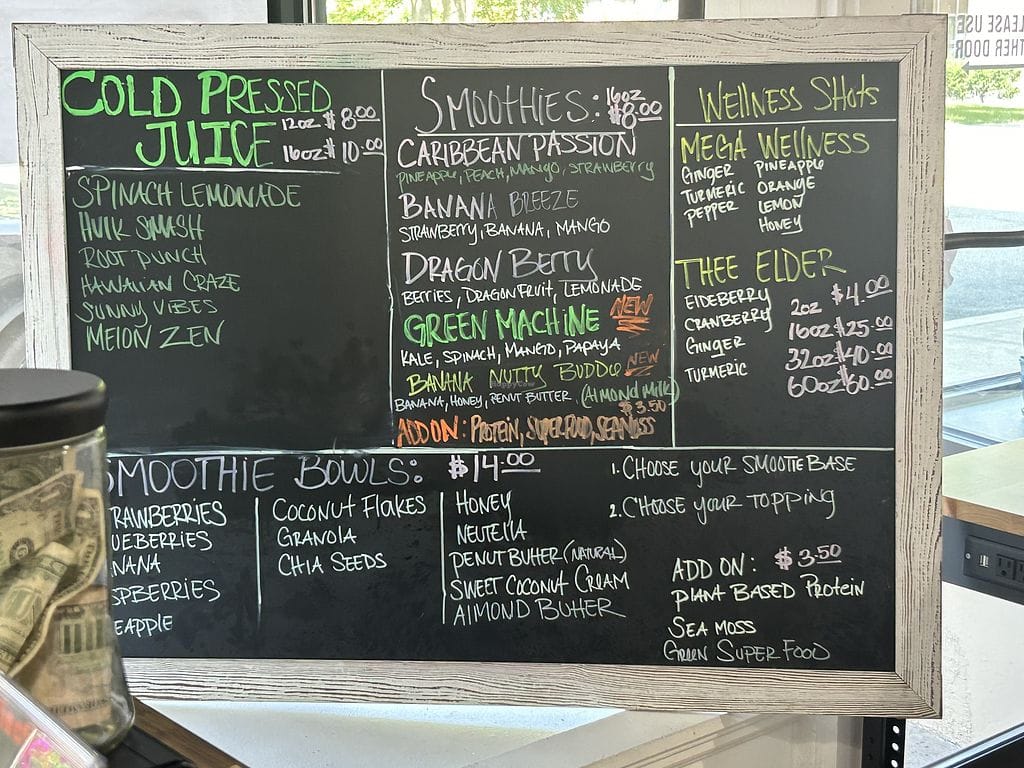 COLD PRESSED
JUICE
12oz $8.00
16oz $10.00
SPINACH LEMONADE
HULK SMASH
ROOT PUNCH
HAWAIIAN CRAZE
SUNNY VIBES
MELON ZEN
SMOOTHIES: 16oz $8.00
CARIBBEAN PASSION
PINEAPPLE, PEACH, MANGO, STRAWBERRY
BANANA BREEZE
STRAWBERRY, BANANA, MANGO
DRAGON BERRY
BERRIES, DRAGONFRUIT, LEMONADE
GREEN MACHINE NEW
KALE, SPINACH, MANGO, PAPAYA
BANANA NUTTY BUDDY NEW
BANANA, HONEY, PENUT BUTTER (AlMOND MilK)
$3.50
ADD ON: PROTEIN, SUPERFOOD, SEAMOSS
WELLNESS SHOTS
MEGA WELLNESS
GINGER PINEAPPLE
TURMERIC ORANGE
PEPPER LEMON
HONEY
THEE ELDER
ElDEBERRY
CRANBERRY
GINGER
TURMERIC
2oz $4.00
16oz $25.00
32oz $40.00
60oz $60.00
SMOOTHIE BOWLS: $14.00
RAWBERRIES
UEBERRIES
NANA
SPBERRIES
EAPPLE
COCONUT FLAKES
GRANOLA
CHIA SEEDS
HONEY
NEUTELLA
PENUT BUTTER (NATURAL)
SWEET COCONUT CREAM
AlMOND BUTTER
1. CHOOSE YOUR SMOOTIE BASE
2. CHOOSE YOUR TOPPING
ADD ON: $3.50
PLANT BASED PROTEIN
SEA MOSS
GREEN SUPER FOOD
LEASE USE
THER DOOR
HappyCow